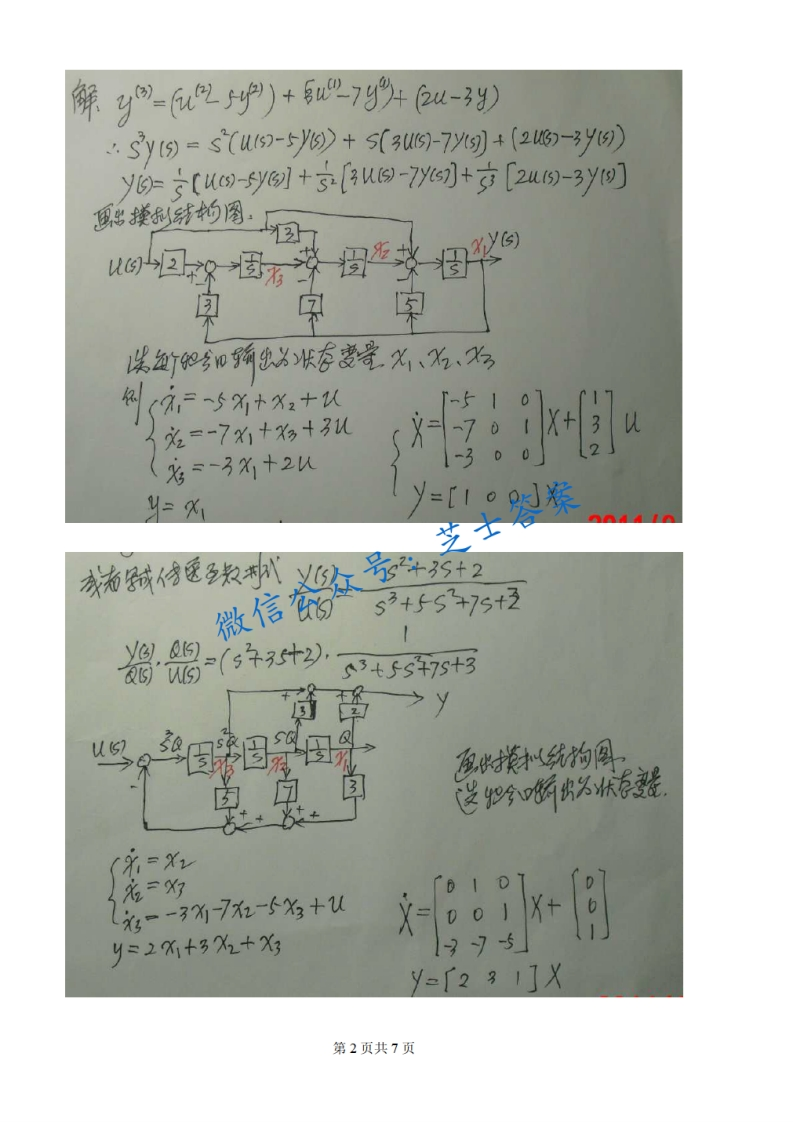 解 y⁽³⁾=(u⁽²⁾-5y⁽²⁾)+(3u⁽¹⁾-7y⁽¹⁾)+(2u-3y)
∴ S³Y(s) = S²(U(s)-5Y(s)) + S[3U(s)-7Y(s)]+(2U(s)-3Y(s))
Y(s)=1/S[U(s)-5Y(s)]+1/S²[3U(s)-7Y(s)]+1/S³[2U(s)-3Y(s)]
画出模拟结构图:
3
U(s) 2 + - 1/S x₃ + - 1/S x₂ + - 1/S x₁ Y(s)
3 7 5
选每个积分输出为状态变量 x₁、x₂、x₃
则 ẋ₁=-5x₁+x₂+u
ẋ₂=-7x₁+x₃+3u
ẋ₃=-3x₁+2u
y=x₁
Ẋ=[-5 1 0; -7 0 1; -3 0 0]X+[1; 3; 2]u
Y=[1 0 0]X
微信公众号:芝士答案
或者写成传递函数形式 Y(s)/U(s) S²+3S+2/S³+5S²+7S+3
Y(s)/Q(s)·Q(s)/U(s)=(S²+3S+2)·1/S³+5S²+7S+3
+ + Y
3 2
U(s) - S³Q 1/S S²Q x₃ 1/S SQ x₂ 1/S Q x₁
5 7 3
+ + + +
画出模拟结构图,
选积分输出为状态变量.
ẋ₁=x₂
ẋ₂=x₃
ẋ₃=-3x₁-7x₂-5x₃+u
y=2x₁+3x₂+x₃
Ẋ=[0 1 0; 0 0 1; -3 -7 -5]X+[0; 0; 1]
Y=[2 3 1]X
第 2 页共 7 页